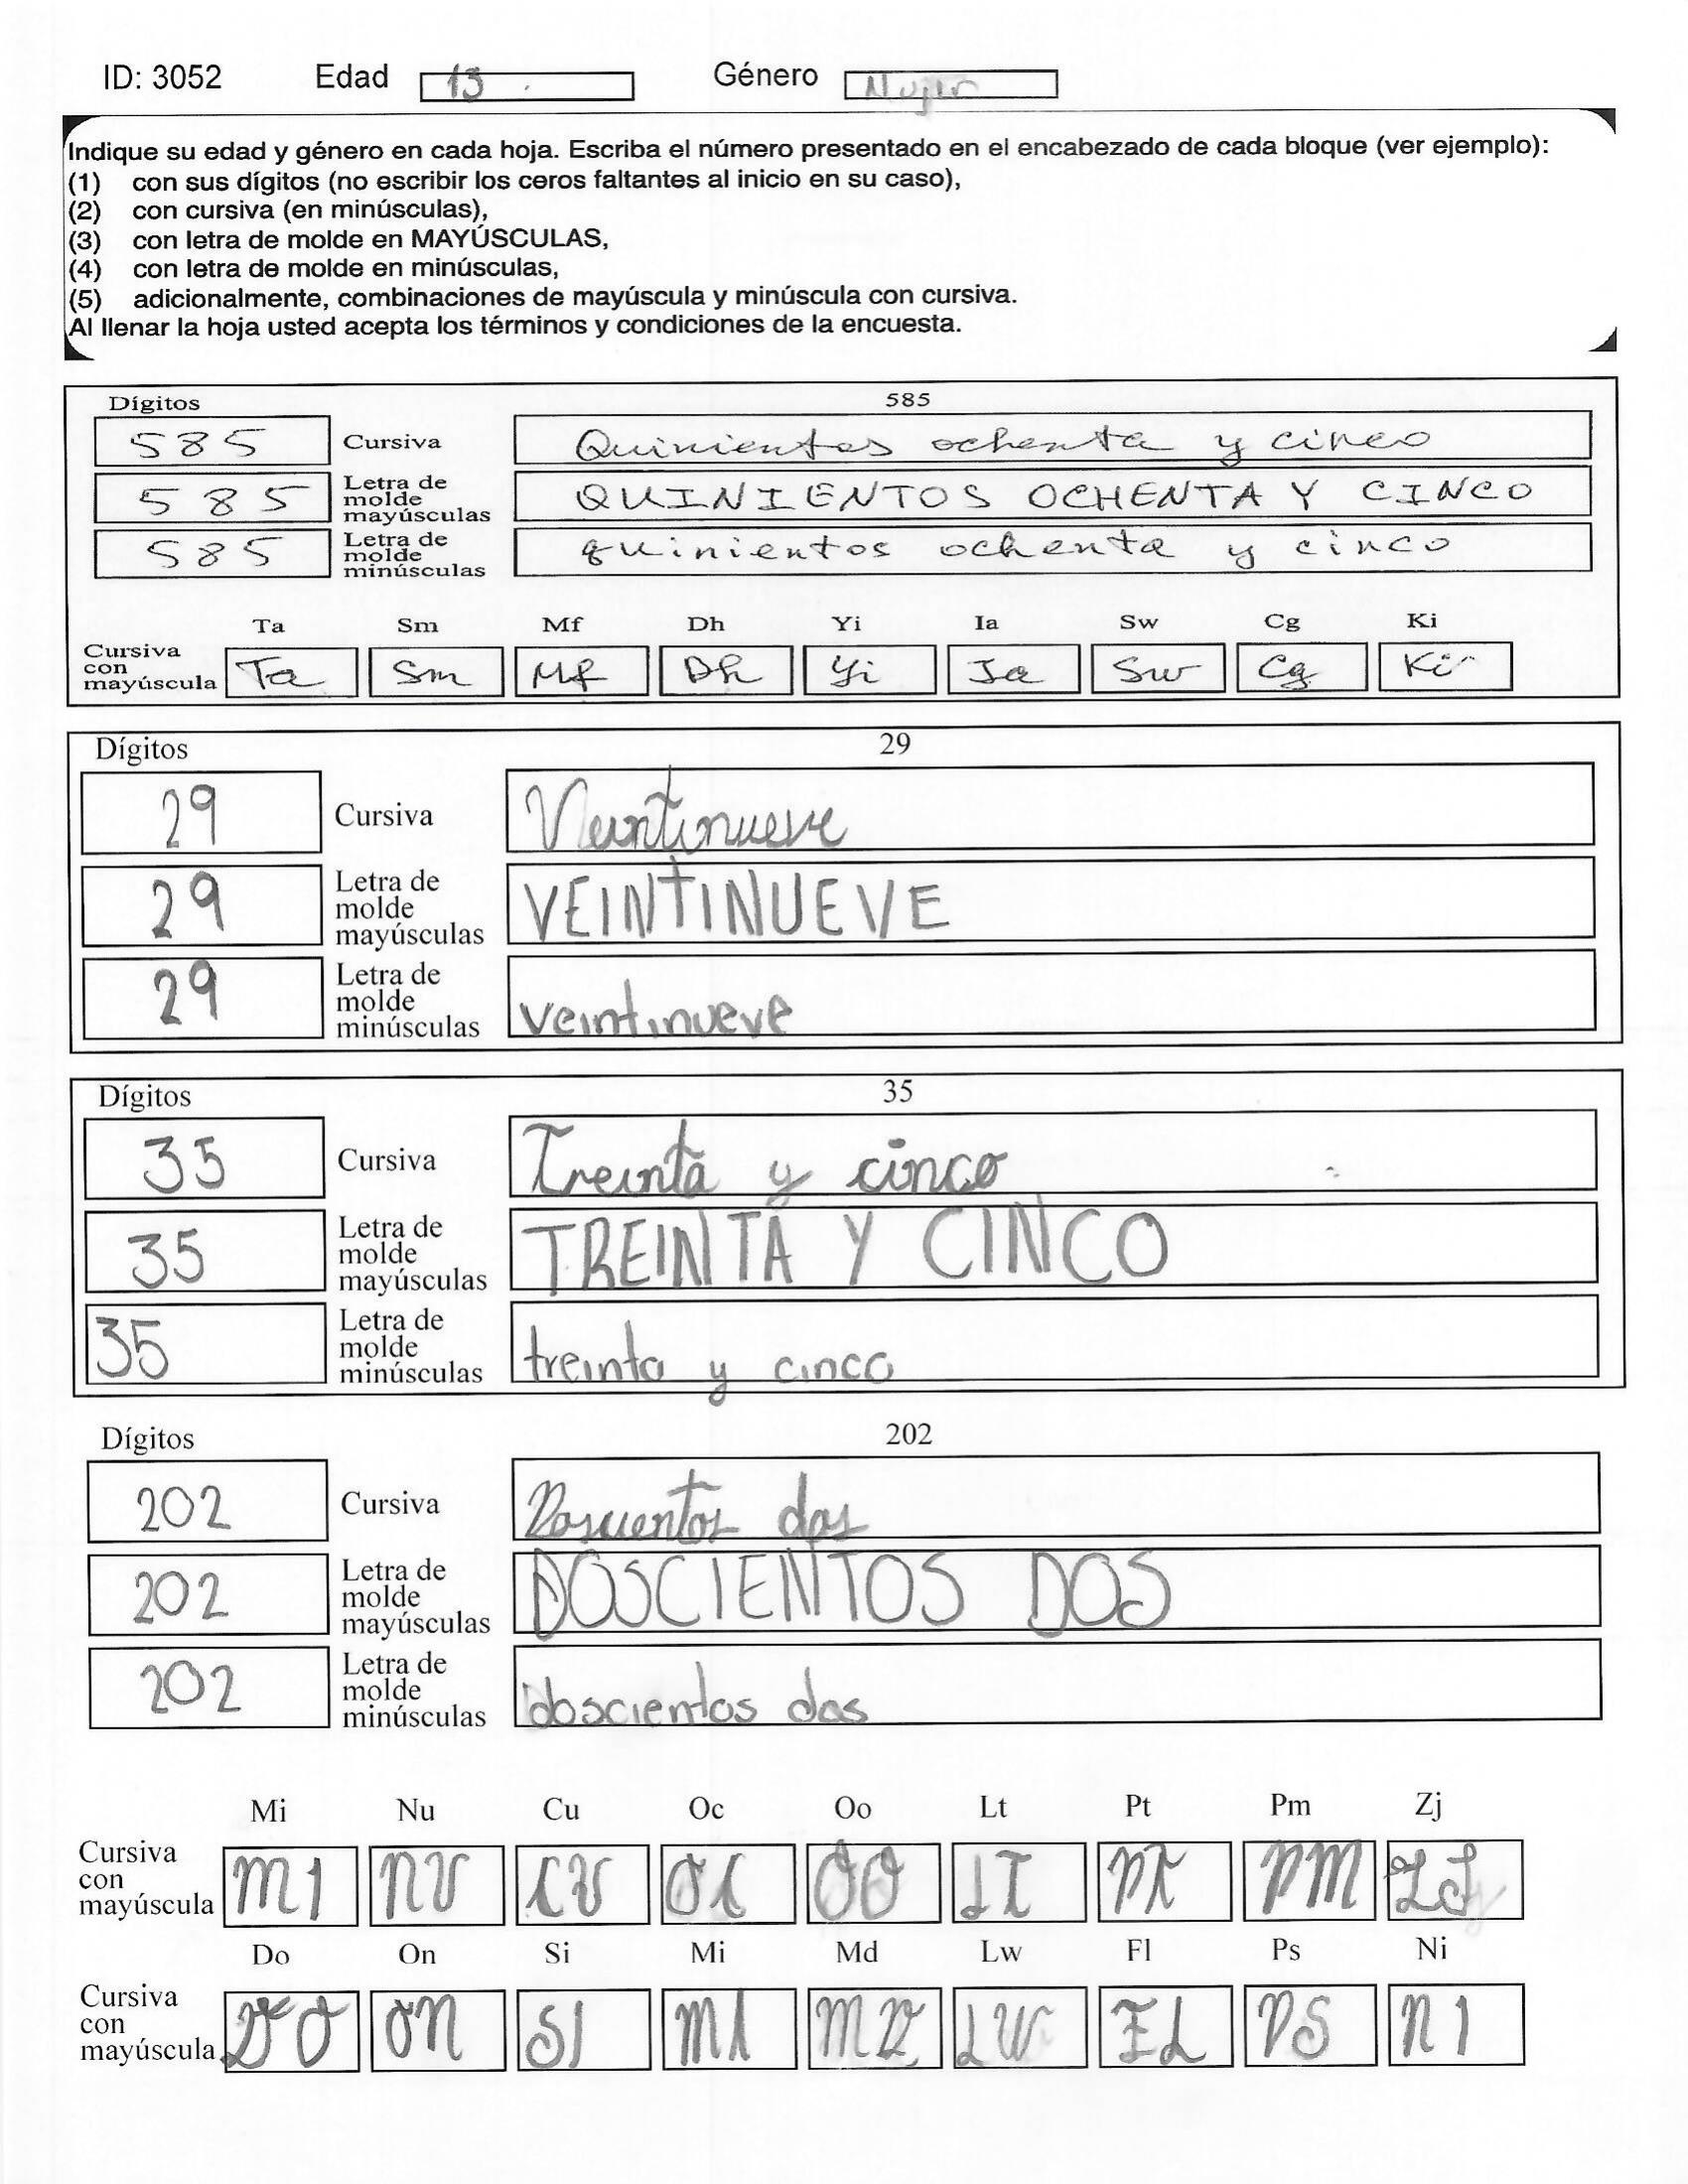 ID: 3052 Edad 13 Género Mujer
Indique su edad y género en cada hoja. Escriba el número presentado en el encabezado de cada bloque (ver ejemplo):
(1) con sus dígitos (no escribir los ceros faltantes al inicio en su caso),
(2) con cursiva (en minúsculas),
(3) con letra de molde en MAYÚSCULAS,
(4) con letra de molde en minúsculas,
(5) adicionalmente, combinaciones de mayúscula y minúscula con cursiva.
Al llenar la hoja usted acepta los términos y condiciones de la encuesta.
Dígitos 585
585 Cursiva Quinientos ochenta y cinco
585 Letra de molde mayúsculas QUINIENTOS OCHENTA Y CINCO
585 Letra de molde minúsculas quinientos ochenta y cinco
Ta Sm Mf Dh Yi Ia Sw Cg Ki
Cursiva con mayúscula Ta Sm Mf Dh Yi Ia Sw Cg Ki
Dígitos 29
29 Cursiva Veintinueve
29 Letra de molde mayúsculas VEINTINUEVE
29 Letra de molde minúsculas veintinueve
Dígitos 35
35 Cursiva Treinta y cinco
35 Letra de molde mayúsculas TREINTA Y CINCO
35 Letra de molde minúsculas treinta y cinco
Dígitos 202
202 Cursiva Doscientos dos
202 Letra de molde mayúsculas DOSCIENTOS DOS
202 Letra de molde minúsculas doscientos dos
Mi Nu Cu Oc Oo Lt Pt Pm Zj
Cursiva con mayúscula MI NU CU OC OO LT PT PM ZJ
Do On Si Mi Md Lw Fl Ps Ni
Cursiva con mayúscula DO ON SI MI MD LW FL PS NI